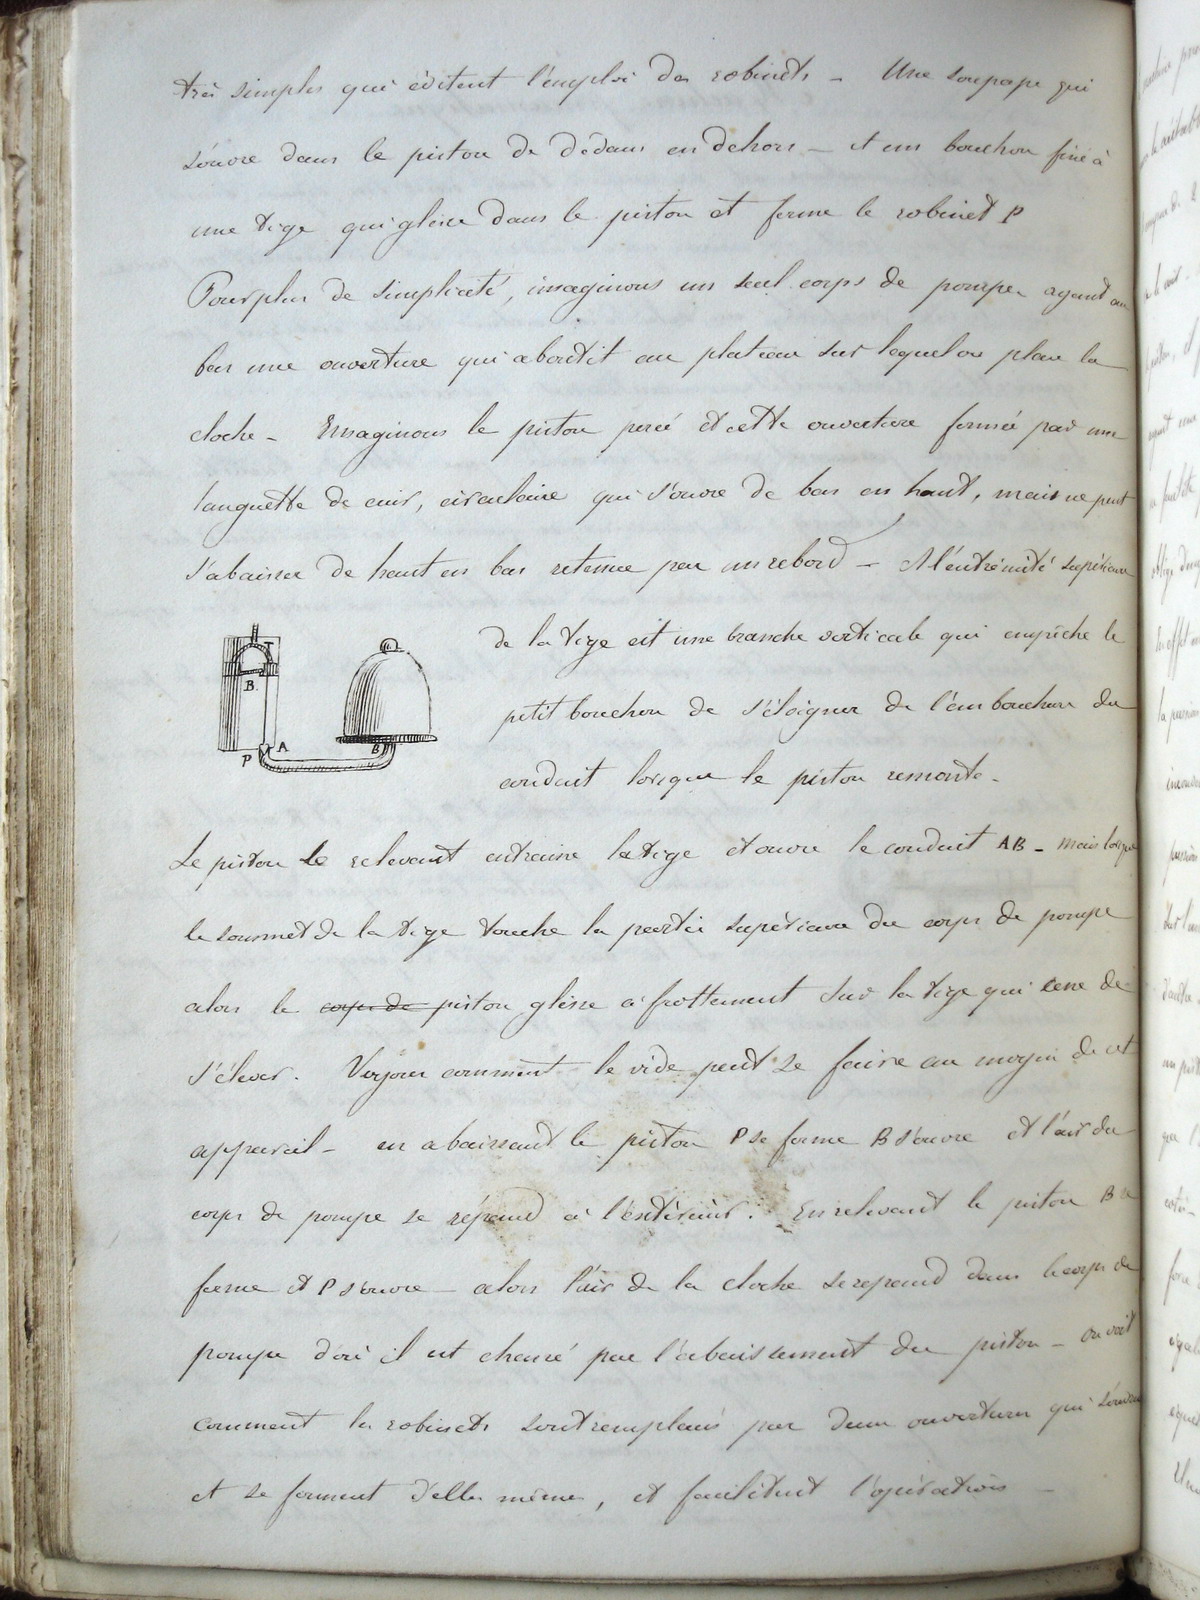 très simples qui évitent l'emploi des robinets – Une soupape qui
s'ouvre dans le piston de dedans en dehors – et un bouchon fixé à
une tige qui glisse dans le piston et ferme le robinet P
Pour plus de simplicité, imaginons un seul corps de pompe ayant au
bas une ouverture qui aboutit au plateau sur lequel on place la
cloche – Imaginons le piston percé et cette ouverture fermée par une
languette de cuir, circulaire qui s'ouvre de bas en haut, mais ne peut
s'abaisser de haut en bas retenue par un rebord – A l'extrémité supérieure
de la tige est une branche verticale qui empêche le
petit bouchon de s'éloigner de l'embouchure du
conduit lorsque le piston remonte.
B
A
P
B
Le piston se relevant entraine la tige et ouvre le conduit AB – mais lorsque
le sommet de la tige touche la partie supérieure du corps de pompe
alors le corps de piston glisse à frottement sur la tige qui cesse de
s'élever. Voyons comment le vide peut se faire au moyen de cet
appareil – en abaissant le piston P se ferme B s'ouvre et l'air du
corps de pompe se répand à l'extérieur. En relevant le piston B se
ferme et P s'ouvre – alors l'air de la cloche se repand dans le corps de
pompe d'où il est chassé par l'abaissement du piston – On voit
comment les robinets sont remplacés par deux ouvertures qui s'ouvrent
et se ferment d'elles mêmes, et facilitent l'opération –